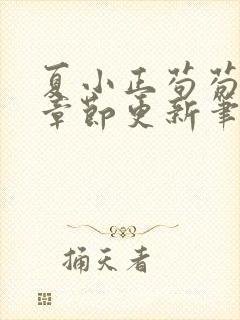 夏小正荀萄
章節更新筆
捅天者